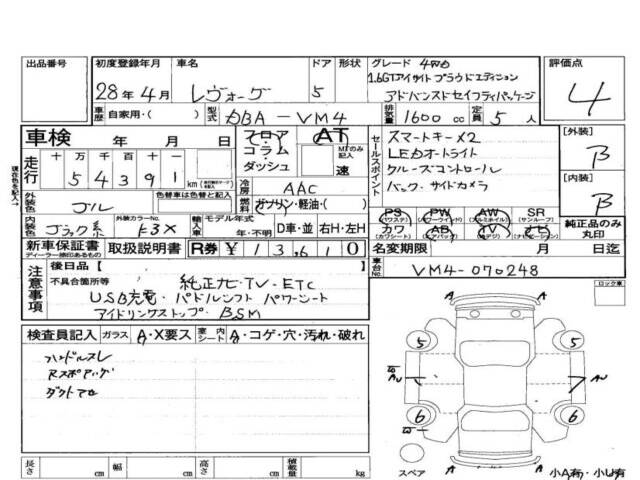 出品番号 初度登録年月 車名 ドア 形状 グレード 4WD 評価点
28年4月 レヴォーグ 5 1.6GTアイサイト プラウドエディション
アドバンスドセイフティパッケージ 4
車歴 自家用・( ) 型式 DBA-VM4 排気量 1600cc 定員 5人
車検 年 月 日 フロア AT スマートキーX2 [外装]
走行 十 万 千 百 十 一 コラム MTのみ記入 セールスポイント LEDオートライト B
5 4 3 9 1 km ダッシュ 速 クルーズコントロール [内装]
外装色 グレ 色替車は色替え前 冷房 AAC バック.サイドカメラ B
現在色を記入→
ガソリン・軽油・( ) PS PW AW SR
(パワステ) (パワーウインド) (アルミホイル) (サンルーフ)
内装色 ブラック系 外装カラーNo. K3X 輸入車 モデル年式 年・不明 D車・並 右H・左H カワ AB TV ナビ
(カワシート) (エアバック) (ナビゲーション)
純正品のみ丸印
新車保証書 取扱説明書 R券 ¥13,610 名変期限 月 日迄
ディーラー捺印あるもの
注意事項 後日品【 車台No. VM4-070248
不具合箇所等 純正ナビ・TV・ETC ロック車
USB充電・パドルシフト パワーシート
アイドリングストップ・BSM
検査員記入 ガラス A・X要ス 室内 シート A・コゲ・穴・汚れ・破れ
ハンドルスレ
ダクト
5 5
AU AU
6 6
A A A A
スペア 小A有・小U有
長さ cm 幅 cm 高さ cm 積載量 kg